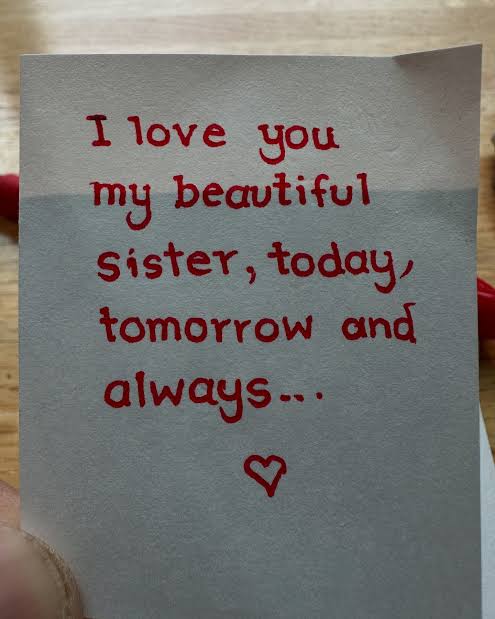 I love you
my beautiful
sister, today,
tomorrow and
always...